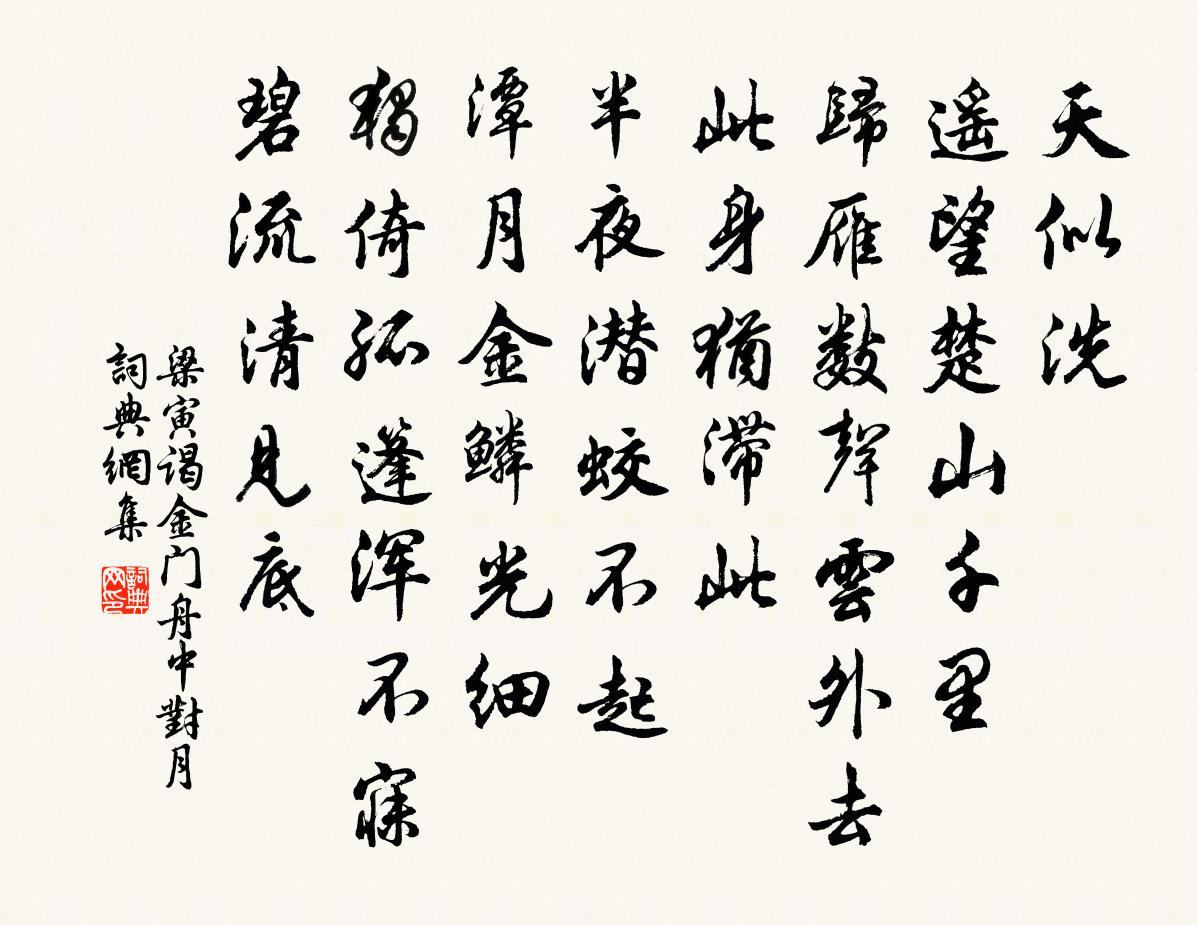 天似洗
遥望楚山千里
歸雁數聲雲外去
此身猶滯此
半夜潛蛟不起
潭月金鱗光细
獨倚孤蓬浑不寐
碧流清見底
梁寅谒金门舟中對月
詞典網集